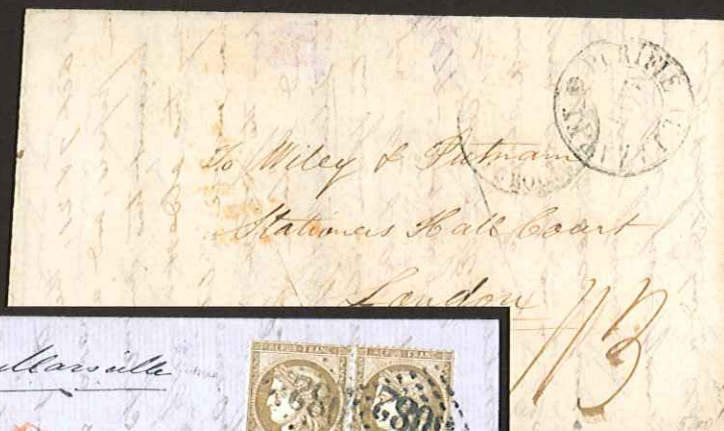 PURIFIE
To Wiley & Putnam
Stationers Hall Court
London
1/3
Marseille
REPUB. FRANC. REPUB. FRANC.
82 082